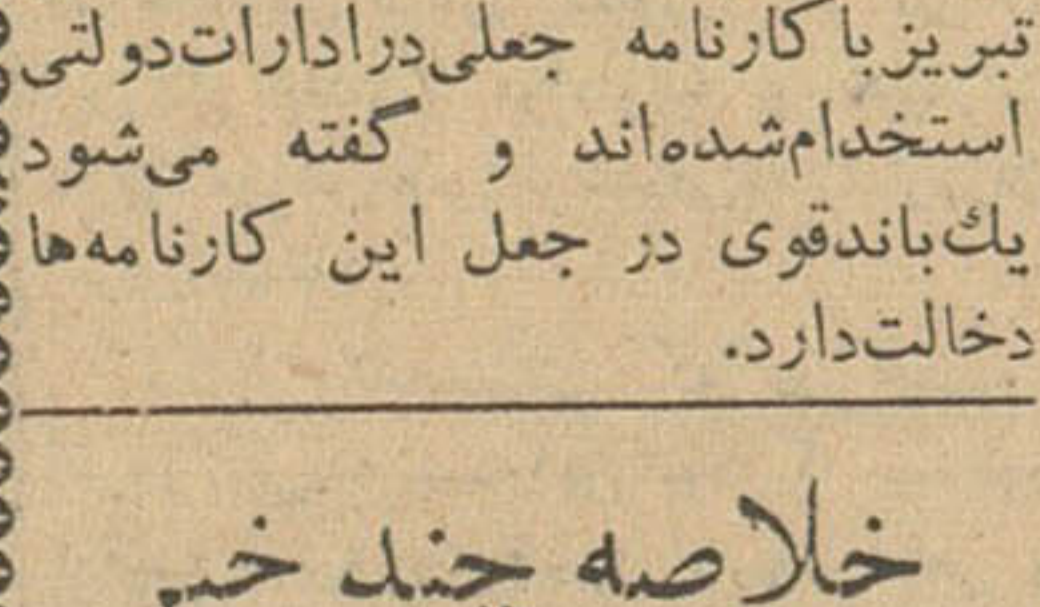 تبریز با کارنامه جعلی در ادارات دولتی
استخدام شده‌اند و گفته می‌شود
یك باند قوی در جعل این کارنامه‌ها
دخالت دارد.
خلاصه چند خبر